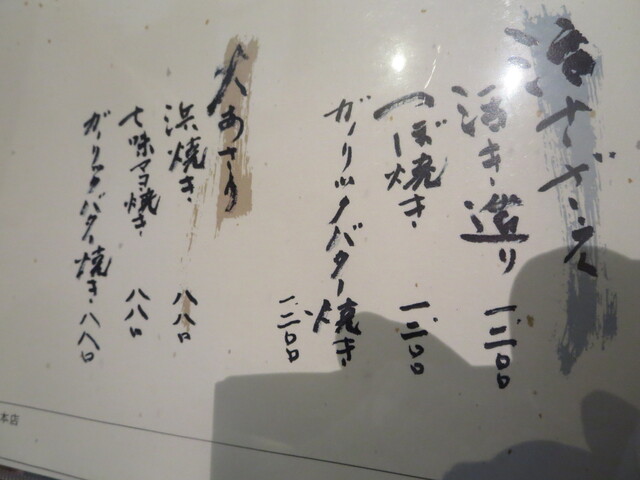 活さざえ
活き造り 一、三〇〇
つぼ焼き 一、三〇〇
ガーリックバター焼き 一、三〇〇
大あさり
浜焼き 八八〇
七味マヨ焼き 八八〇
ガーリックバター焼き 八八〇
本店